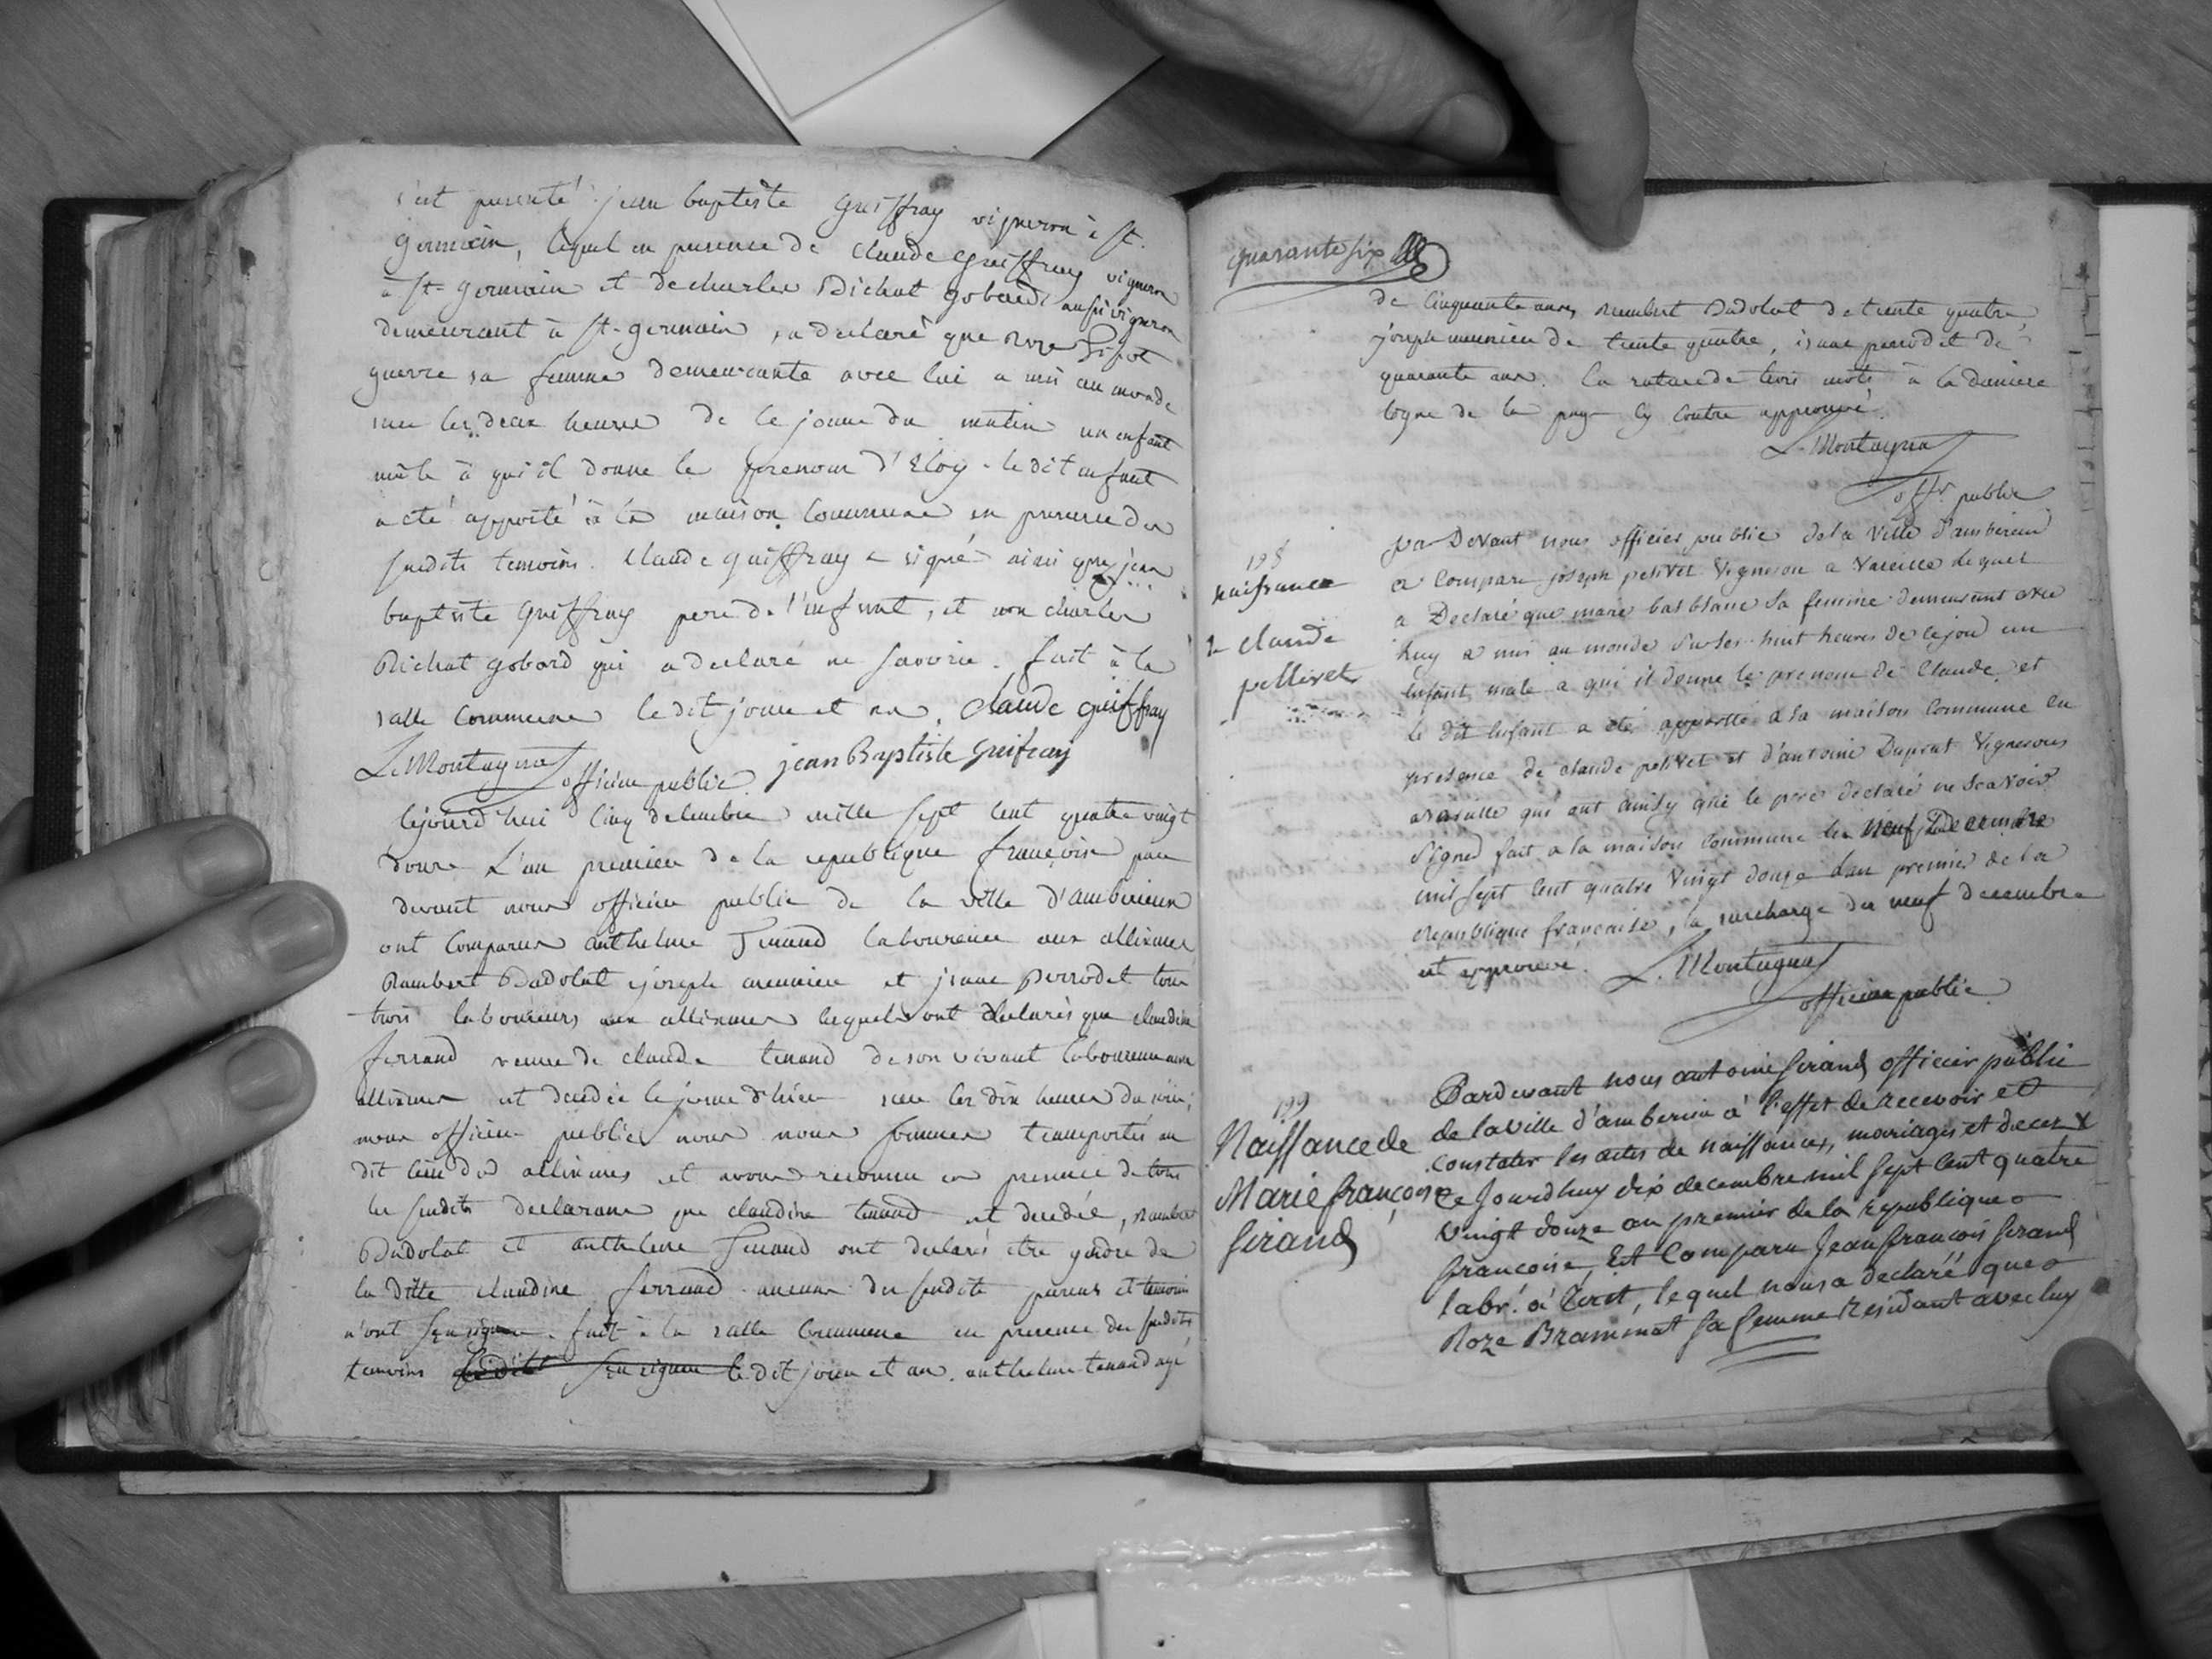 s'est presenté jean baptiste Greiffray vigneron à St.
Germain, lequel en presence de claude Greiffray vigneron
à St- Germain et de charles Dichat gobard aussi vigneron
demeurant à St- germain, a declaré que roze
guerre sa femme demeurante avec lui a mis au monde
sur les deux heures de ce jour du matin un enfant
mâle à qui il donne le prenom d'Eloy. le dit enfant
a eté apporté à la maison Commune en presence des
susdits temoins. Claude Greiffray a signé ainsi que jean
baptiste Greiffray pere de l'enfant, et non charles
Dichat gobard qui a declaré ne savoir. fait à la
salle Commune le dit jour et an. claude greiffray
L. Montagnat officier public. jean Baptiste Greifray
Cejourd'hui Cinq decembre mille sept cent quatre vingt
douze L'an premier de la republique françoise par
devant nous officier public de la ville d'ambérieux
ont Comparus anthelme Tenand laboureur aux allixmes
Rambert Dadolat joseph meunier et jsaac perrodet tous
trois laboureurs aux allixmes lesquels ont declarés que claudine
ferrand veuve de claude tenand de son vivant laboureur aux
allixmes est decedée le jour d'hier sur les dix heures du soir;
nous officier public nous nous sommes transportés au
dit lieu des allixmes et avons reconnu en presence de tous
les susdits declarans que claudine tenand est decedée, rambert
Dadolat et anthelme Tenand ont declarés etre gendre de
la ditte claudine ferrand aucuns des susdits parens et temoins
n'ont su signer. fait à la salle Commune en presence des susdits
temoins le dit jour et an. anthelme tenand agé
quarante six
de Cinquante ans, rambert Dadolat de trente quatre,
joseph meunier de trente quatre, isaac perrodet de
quarante ans. la rature de trois mots à la derniere
ligne de la page cy Contre approuvé.
L. Montagnat
offr. public
198
naissance
claude
pettivet
par Devant nous officier public dela Ville d'amberieu
a Comparu joseph petivet Vigneron a Vareille lequel
a Declaré que marie bal blanc Sa femme demeurant avec
luy a mis au monde Surles huit heures de cejour un
Enfant male a qui il donne le prenom de Claude et
le dit Enfant a eté apportté a la maison Commune en
presence de claude petivet et d'antoine Duprat Vignerons
a vareille qui ont ainsy que le pere declaré ne scavoir
signer fait a la maison Commune le Neuf Decembre
mil sept Cent quatre Vingt douze L'an premier de la
republique française, la surcharge du neuf decembre
est approuvé. L. Montagnat
officier public
199
Naissance de
Marie françoise
Girand
Pardevant nous antoine Girand officier public
de la ville d'amberieu à l'effet de recevoir et
constater les actes de naissances, mariages et deces &
Ce Jourdhuy dix decembre mil sept Cent quatre
vingt douze an premier de la republique
françoise, Est Comparu Jean françois Girand
labr. à Tiret, lequel nous a declaré que
Roze Brammat sa femme Residant avec luy